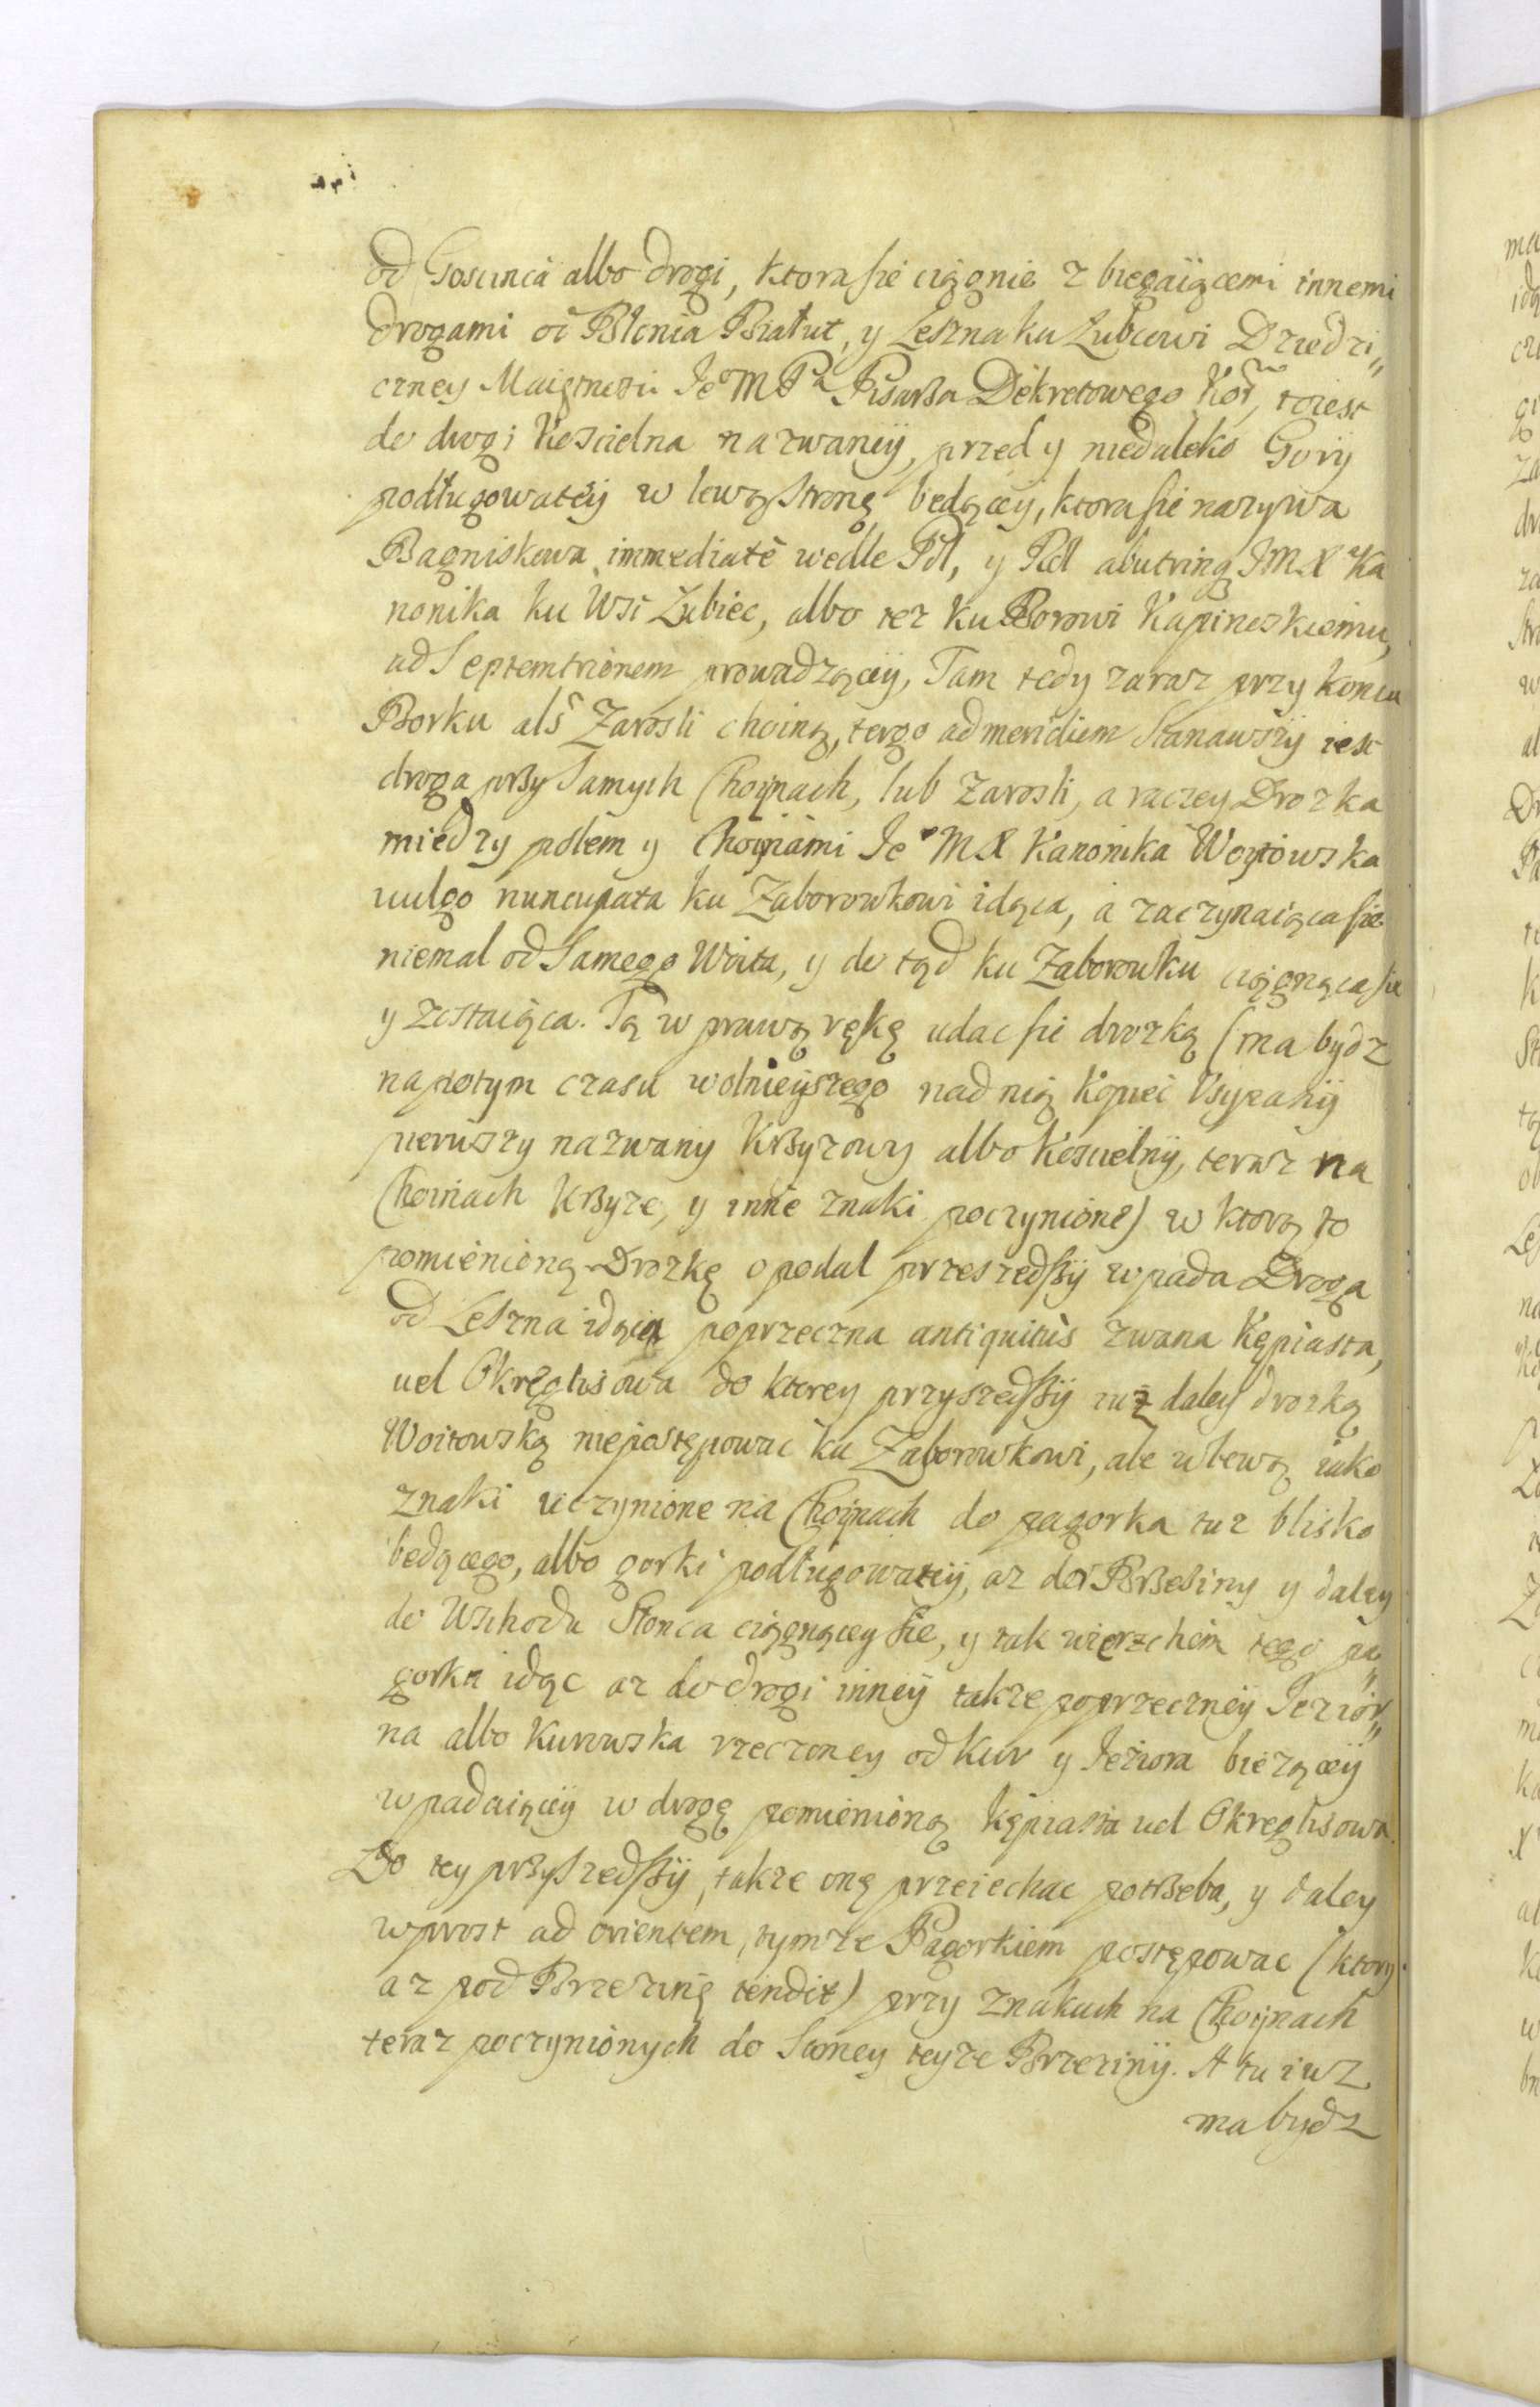 od Goscinca albo drogi, ktora sie ciągnie z biegaiącemi innemi
drogami od Błonia Białut, y Leszna ku Łubcowi Dziedzi„
czney Maiętnosci Jeo M Pa Pisarza Dekretowego Kor, toiest
do drogi Koscielna nazwaney, przed y niedaleko Gory
podługowatey w lewą stronę będącey, ktora sie nazywa
Bagniskowa immediatè wedle Pol, y Pol abutrinq JMX Ka
nonika ku Wsi Łubiec, albo tez ku Borowi Kapinoskiemu,
ad Septemtrionem prowadzącey, Tam tedy zaraz przy koncu
Borku als Zarosli choiną, tergo ad meridiem Stanawszy iest
droga przy samych Choynach, lub Zarosli, a raczey Drozka
między polem y Choynami Jeo MX Kanonika Woytowska
vulgo nuncupata ku Zaborowkowi idąca, a zaczynaiąca sie
niemal od Samego Woita, y do tąd ku Zaborowku ciągnąca sie
y zostaiąca. Tą w prawą rękę udac sie drozką (ma bydz
napotym czasu wolnieyszego nad nią Kopiec Usypany
pierwszy nazwany Krzyzowy albo Koscielny, teraz na
Choinach Krzyze, y inne znaki poczynione) w ktorą to
pomienioną Drozkę opodal przeszedszy wpada Droga
od Leszna idąca poprzeczna antiquitùs zwana Kępiasta,
vel Okręglisowa do ktorey przyszedszy iuz daley drozką
Woitowską niepostępowac ku Zaborowkowi, ale w lewą iako
znaki uczynione na Choynach do pagorka tuz blisko
będącego, albo gorki podługowatey, az do Brzeziny y daley
do Wschodu Słonca ciągnącey sie, y tak wierzchem tego pa„
gorka idąc az do drogi inney takze poprzeczney Jezior„
na albo Kurowska rzeczoney od Kur y Jeziora biezącey
wpadaiącey w drogę pomienioną Kępiasta vel Okreglisowa.
Do tey przyszedszy, takze onę przeiechac potrzeba, y daley
wprost ad orientem, tymze Pagorkiem postępowac (ktory
az pod Brzezinę tendit) przy Znakach na Choynach
teraz poczynionych do Samey teyze Brzeziny. A tu iuz
ma bydz